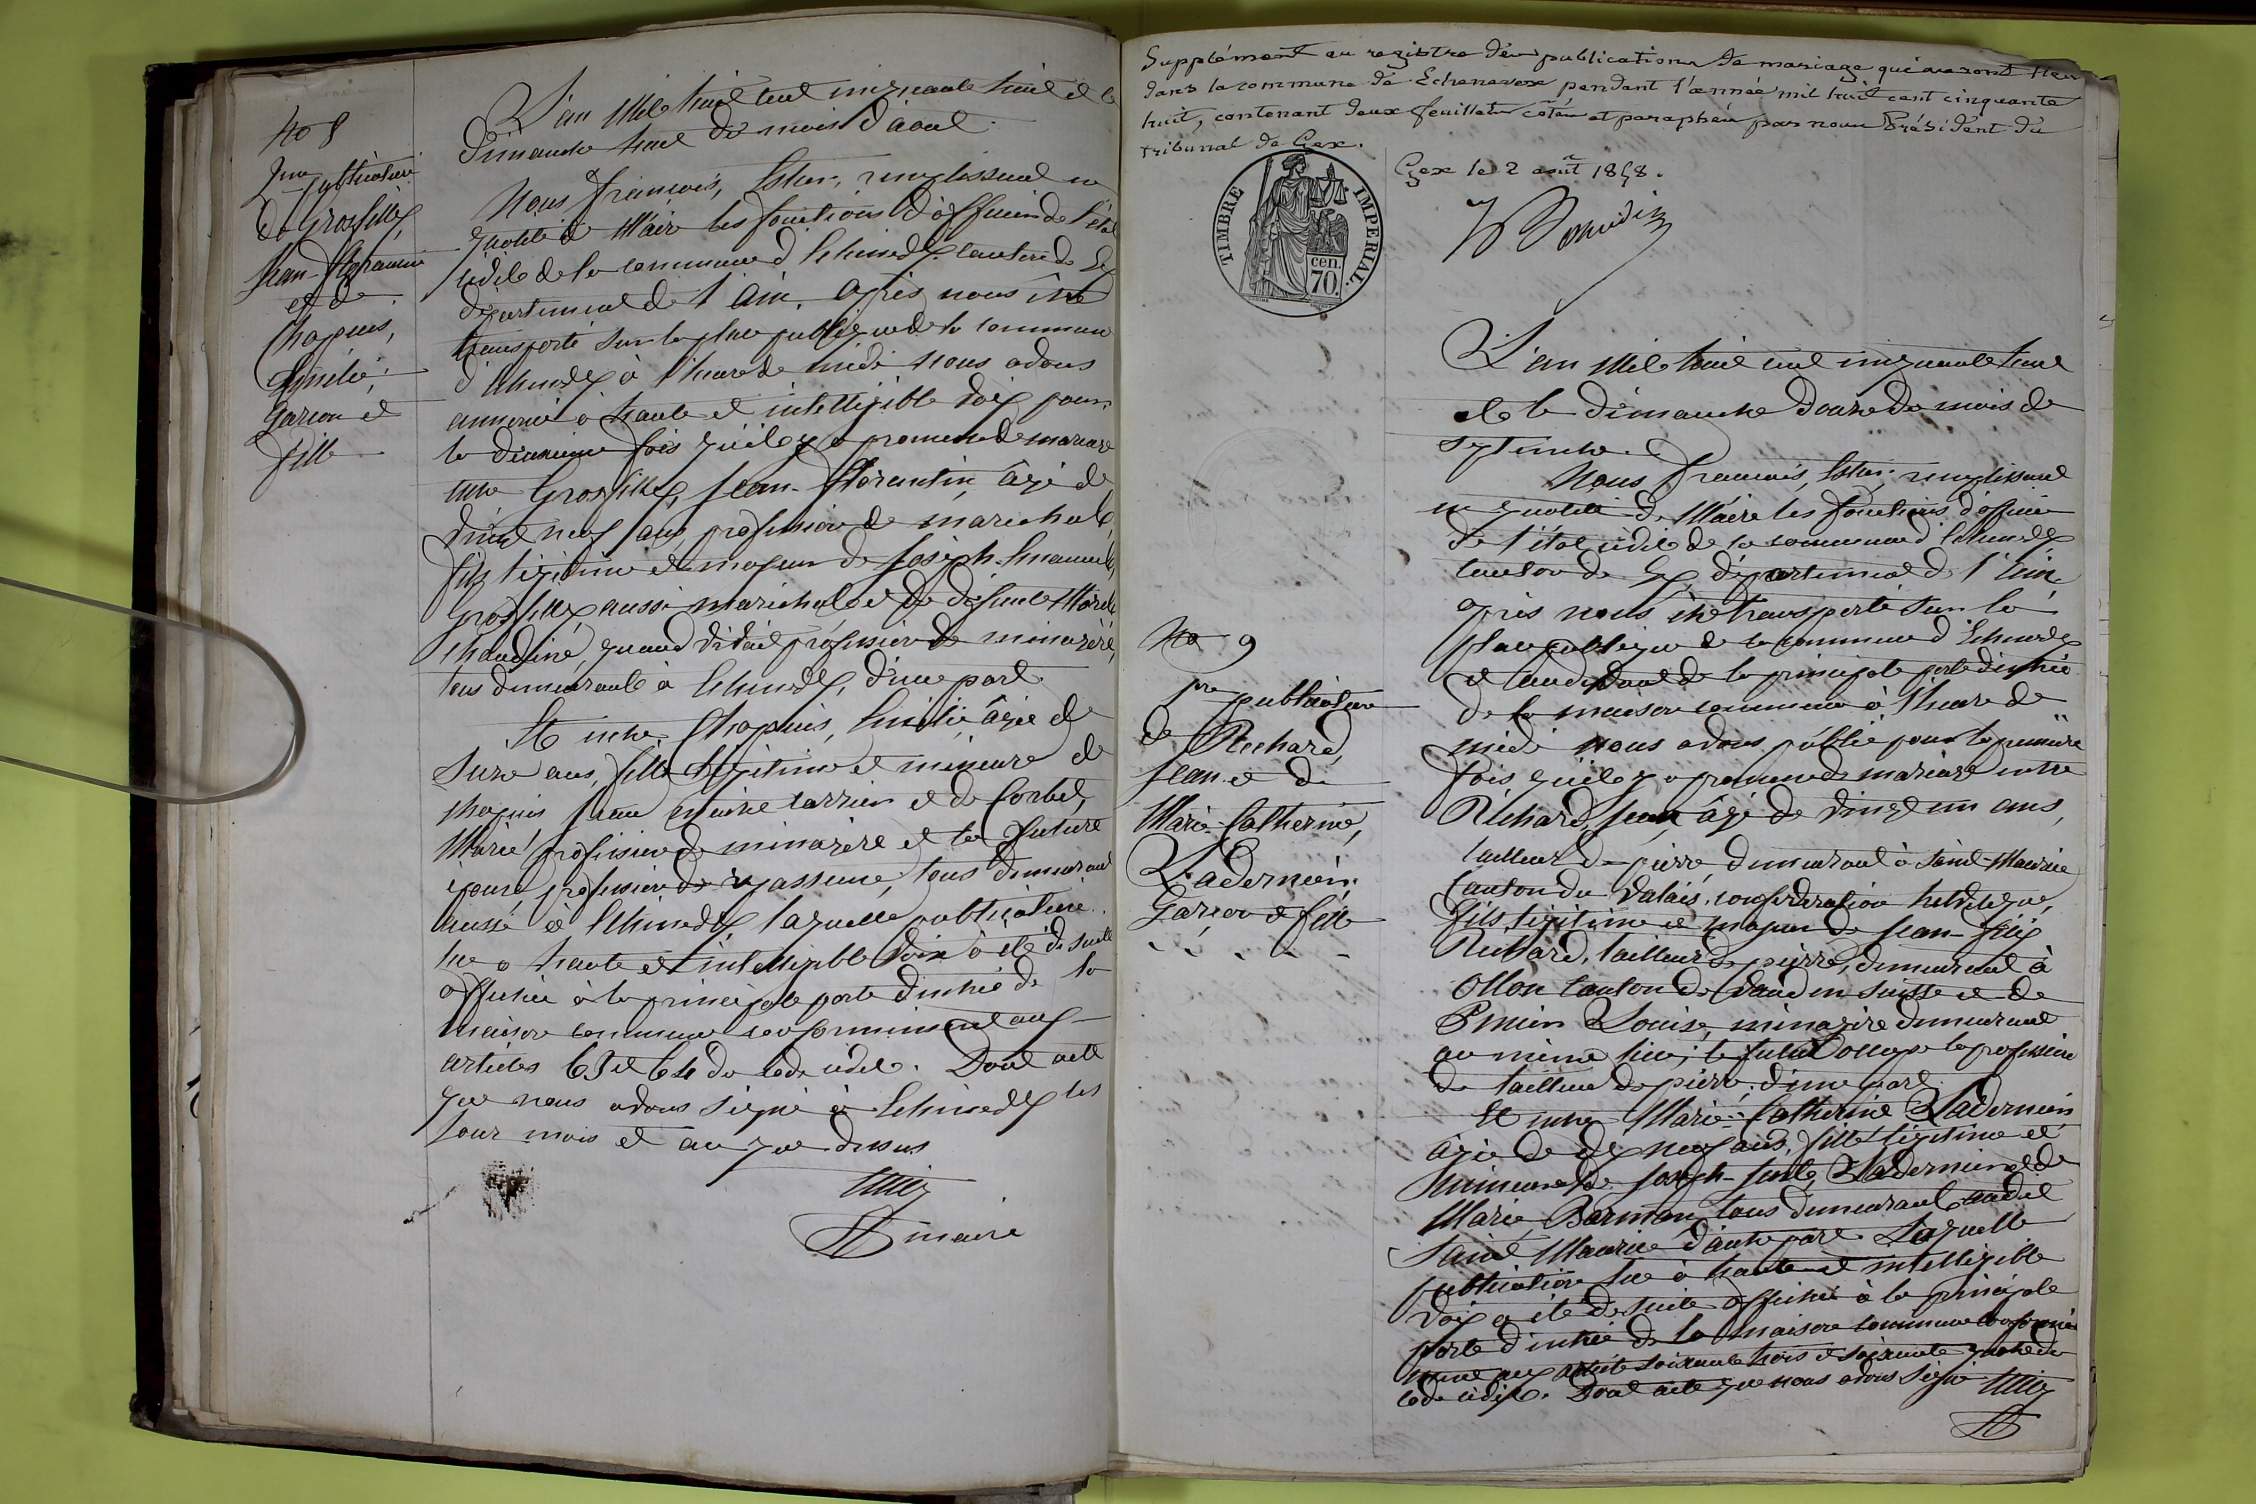 No 8
2me publication
de Grosfilley,
Jean-Florantin
et de
Chapuis,
Emélie,
garçon et
fille
L'an Mil huit cent cinquante huit et le
dimanche huit du mois d'aout.
Nous François, remplissant en
qualité de Maire les fonctions d'officier de l'état
civile de la commune d'Echenevex canton de Gex
département de l'Ain, après nous être
transporté sur la place publique de la commune
d'Echenevex à l'heure de midi nous avons
annoncé à haute et intelligible voix pour
la deuxième fois qu'il y a promesse de mariage
entre Grosfilley, Jean-Florantin, âgé de
vingt neuf ans, profession de marechal,
fils légitime et majeur de Joseph-Emanuel
Grosfilley, aussi marechal et de défunte
quand vivait profession de minagère,
tous demeurant à Echenevex, d'une part.
Et entre Chapuis, Emélie, âgée de
seize ans, fille légitime et mineure de
Chapuis et de Corbet,
Marie profession de minagère et la future
épouse, profession de repasseuse, tous demeurant
aussi à Echenevex, laquelle publication
lue a haute et intelligible voix a été de suite
affichée à la principale porte d'entrée de la
maison commune conformément aux
articles 63 et 64 du code civil. Dont acte
que nous avons signé à Echenevex les
jour mois et an que dessus
maire
Supplément au registre des publications de mariage qui auront lieu
dans la commune de Echenevex pendant l'année mil huit cent cinquante
huit, contenant deux feuillets côtés et paraphés par nous Président du
tribunal de Gex.
Gex le 2 août 1858.
TIMBRE IMPERIAL.
cen.
70.
L'an Mil huit cent cinquante huit
et le dimanche douze du mois de
septembre.
Nous François, remplissant
en qualité de Maire les fonctions d'officier
de l'état civile de la commune d'Echenevex
canton de Gex, département de l'Ain,
après nous être transporté sur la
place publique de la commune d'Echenevex
et au devant de la principale porte d'entrée
de la maison commune à l'heure de
midi nous avons publié pour la première
fois qu'il y a promesse de mariage entre
Richard, Jean, âgé de vingt un ans,
tailleur de pierre, demeurant à Saint-Maurice
canton du Valais, confédération helvétique,
fils légitime et majeur de Jean-Félix
Richard, tailleur de pierre, demeurant à
Ollon canton de Vaud en Suisse et de
Louise, minagère demeurant
au même lieu; le futur occupe la profession
de tailleur de pierre, d'une part.
Et entre Marie-Catherine
âgée de dix neuf ans, fille légitime et
mineure de Joseph- et de
Marie, tous demeurant audit
Saint Maurice d'autre part. Laquelle
publication lue à haute et intelligible
voix a été de suite affichée à la principale
porte d'entrée de la maison commune conformé
ment aux article soixante trois et soixante quatre du
code civil. Dont acte que nous avons signé
No 9
1re publication
de Richard,
Jean et de
Marie-Catherine,
Garçon et fille